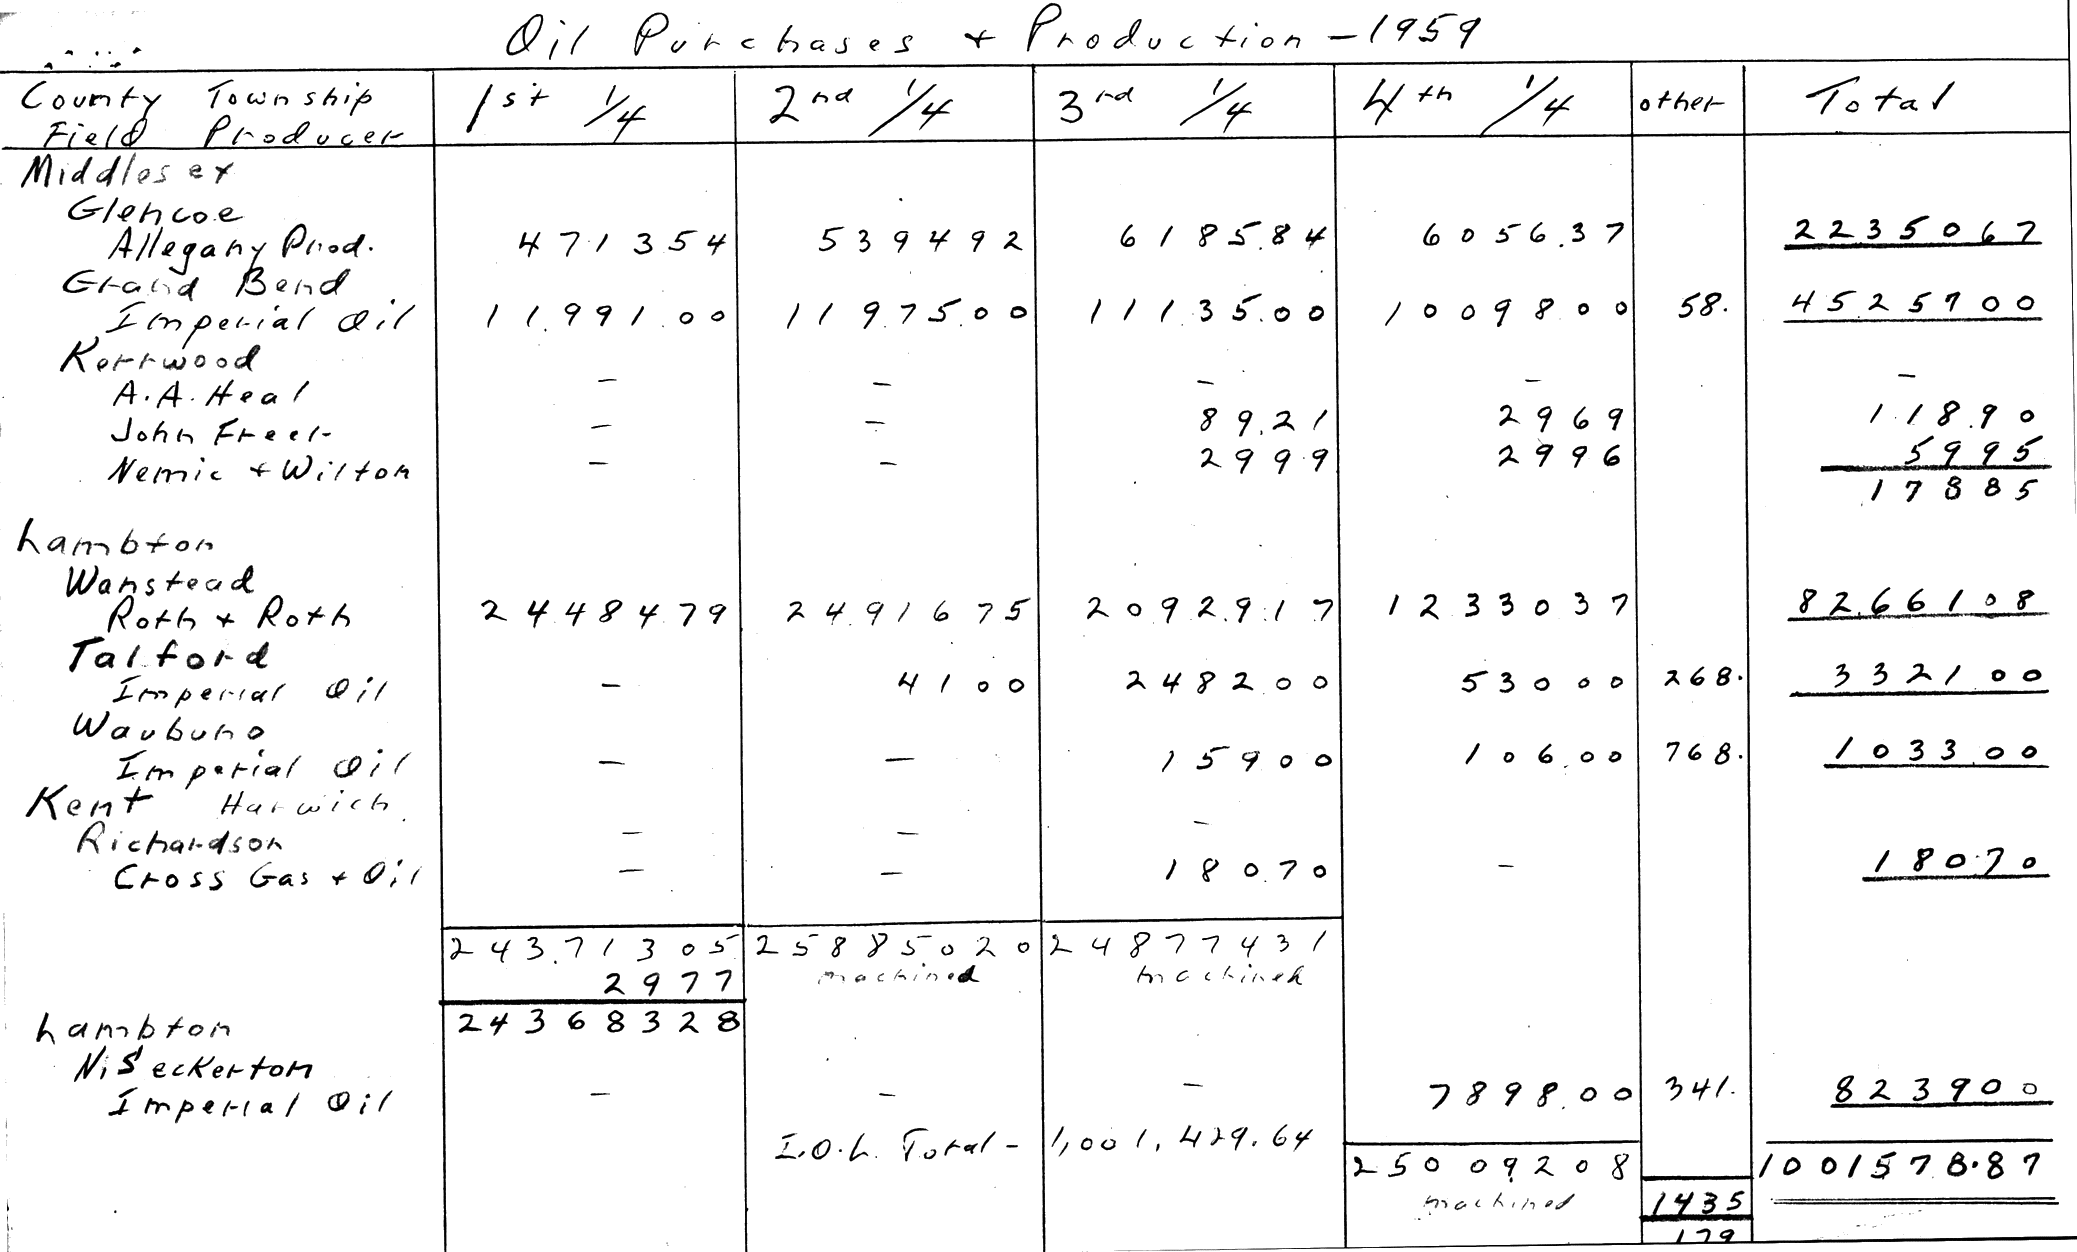 Oil Purchases + Production - 1959
County Township 1st 1/4 2nd 1/4 3rd 1/4 4th 1/4 other Total
Field Producer
Middlesex
Glencoe
Allegany Prod. 471354 539492 6185.84 6056.37 2235067
Grand Bend
Imperial Oil 11991.00 11975.00 11135.00 1009800 58. 4525700
Kerrwood
A.A. Heal - - - - -
John Freer - - 89.21 2969 118.90
Nemic + Wilton - - 2999 2996 5995
17885
Lambton
Wanstead
Roth + Roth 2448479 2491675 20929.17 1233037 8266108
Talford
Imperial Oil - 4100 248200 53000 268. 332100
Waubuno
Imperial Oil - - 15900 106.00 768. 1033.00
Kent Harwich
Richardson - - -
Cross Gas + Oil - - 180.70 - 180.70
243.71305 25885020 24877431
2977 machined machined
24368328
Lambton
N. Seckerton
Imperial Oil - - - 7898.00 341. 823900
I.O.L. Total - 1,001,429.64
25009208 1001578.87
machined 1435
179